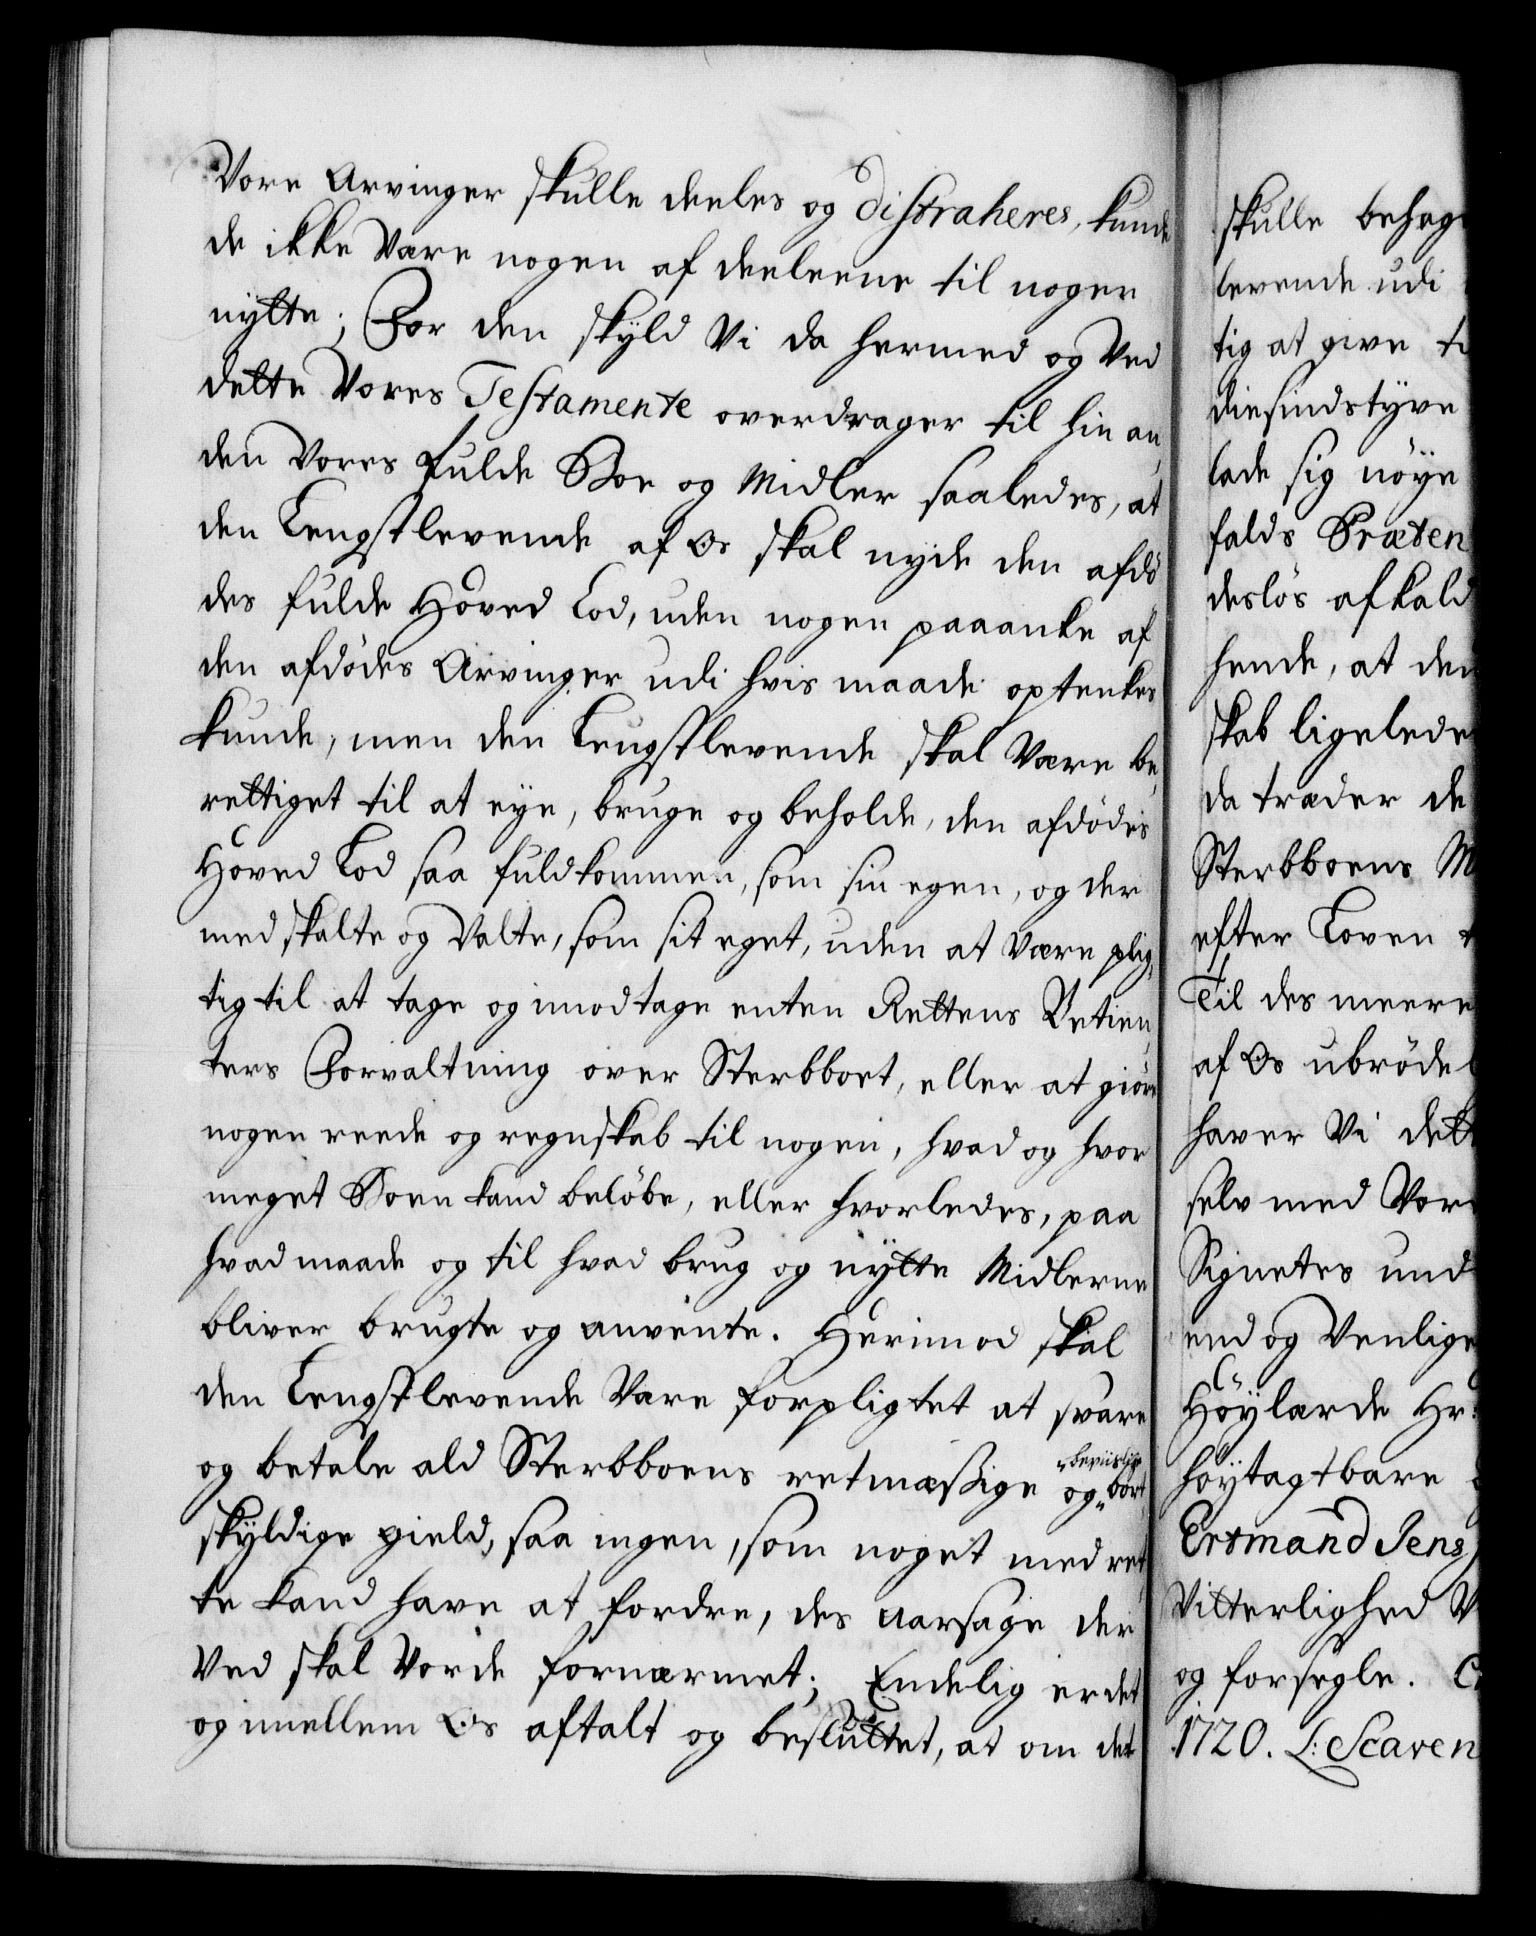 Vore Arvinger skulle deeles og distraheres, kun¬
de ikke være nogen af deeleene til nogen
nytte; For den skyld Vi da hermed og Ved
dette Vores Testamente overdrager til hin an¬
den Vores fulde Boe og Midler saaledes, at
den Lengstlevende af Os skal nyde den afdö¬
des fulde Hoved Lod, uden nogen paaanke af
den afdödes Arvinger udi hvis maade optenkes
kunde, men den Lengstlevende skal Være be¬
rettiget til at eye, bruge og beholde, den afdödes
Hoved Lod saa fuldkommen, som sin egen, og der
med skalte og Valte, som sit eget, uden at Være plig¬
tig til at tage og imodtage enten Rettens Betien¬
ters Forvaltning over Sterbboet, eller at giöre
nogen reede og regnskab til nogen, hvad og hvor
meget Boen kand belöbe, eller hvorledes, paa
hvad maade og til hvad brug og nytte Midlerne
bliver brugte og anvente. Herimod skal
den Lengstlevende Være forpligtet at svare
og betale ald Sterbboens retmæssige og bevislige bort
skyldige gield, saa ingen, som noget med ret¬
te kand have at fordre, des aarsage der
Ved skal Vorde fornærmet; Endelig er det
og imellem Os aftalt og besluttet, at om det
skulle behag
levende udi
tig at give
diesindstyve
lade sig nöye
falds Præten
deslös afkald
hende, at den
skab ligelede
da træder de
Sterbboens M
efter Loven
Til des meere
af Os ubrödel
haver Vi dett
selv med Vor
Signetes und
end og Venlige
Höylærde Hr:
höytagtbare
Ertmand Jens
Vitterlighed V
og forsegle.
1720. L: Scaven